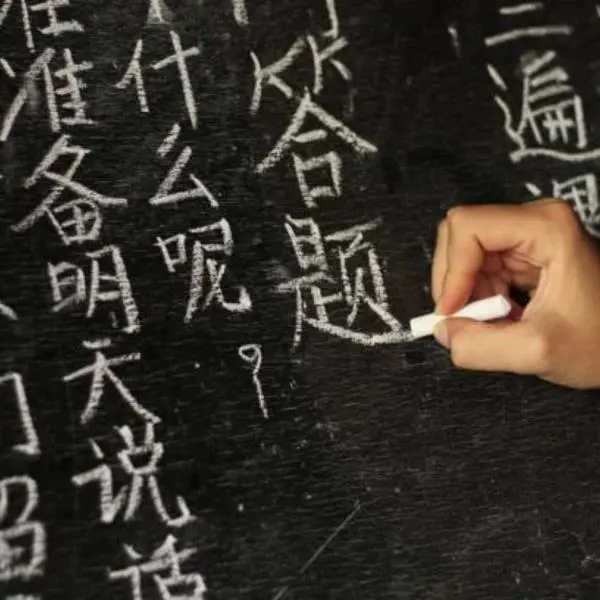 三遍课
答题
什么呢?
准备明天说话
留